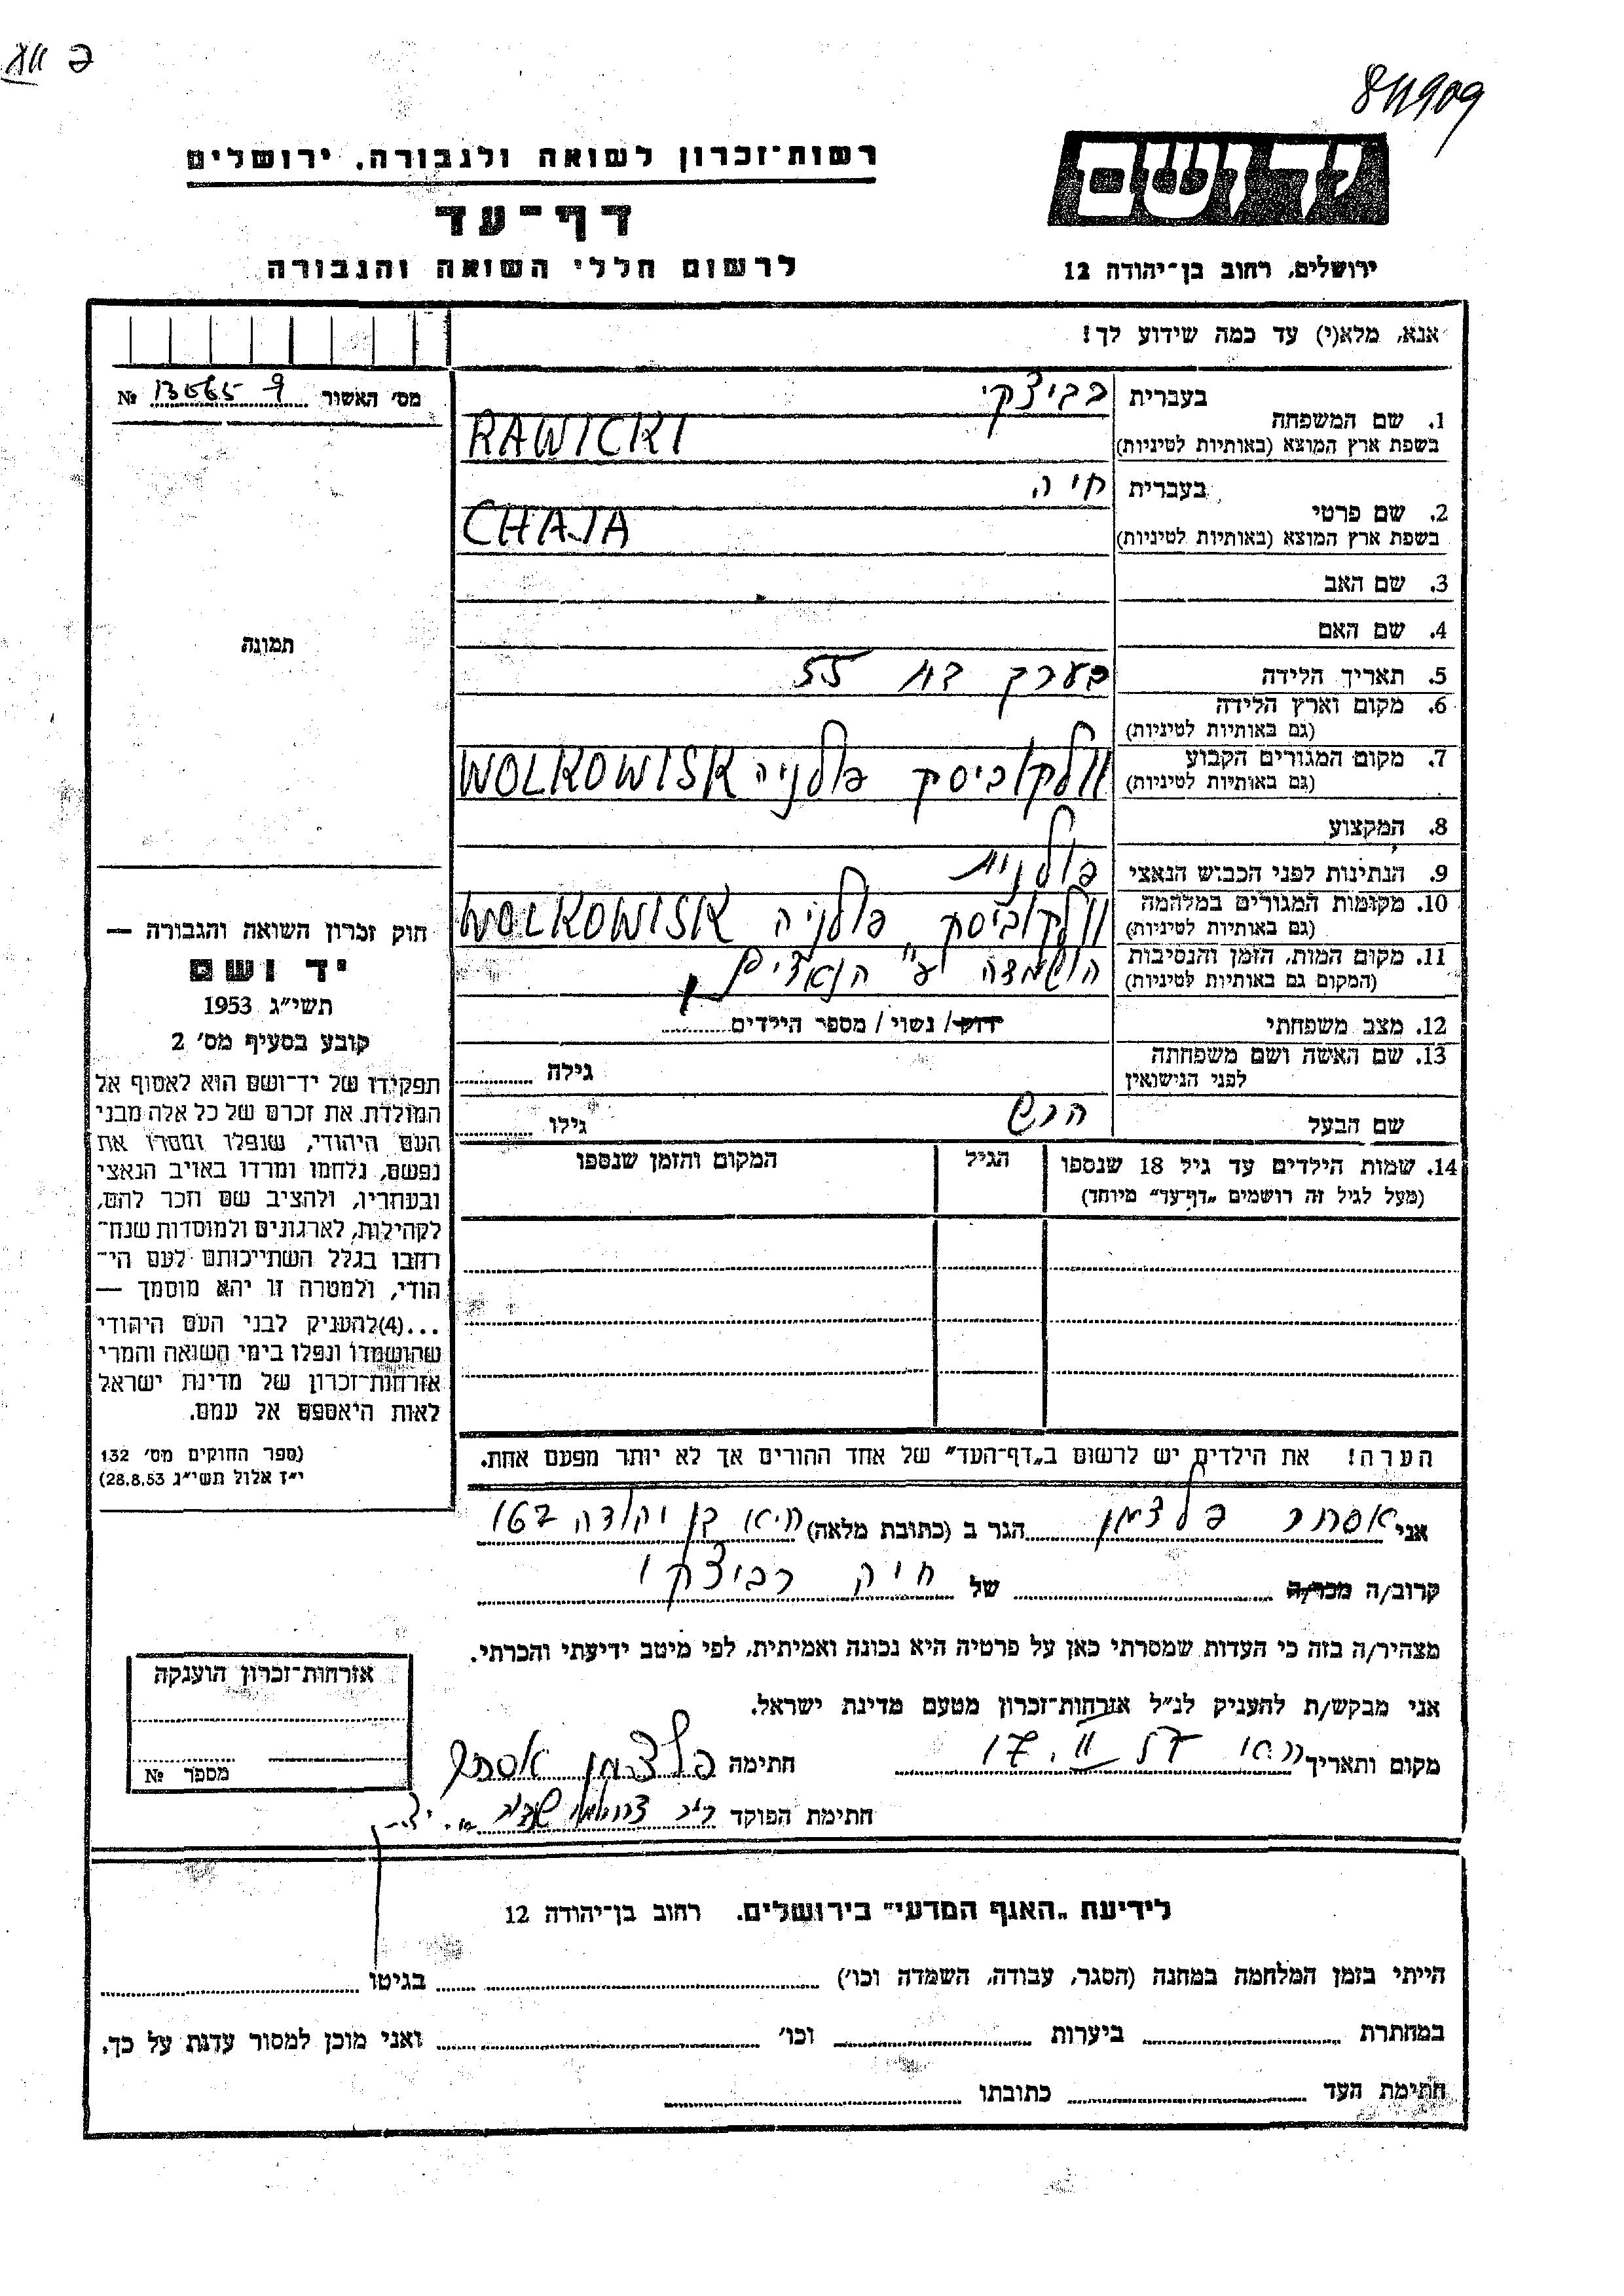 811909
רשות־זכרון לשואה ולגבורה, ירושלים
יד ושם
דף־עד
לרשום חללי השואה והגבורה
ירושלים, רחוב בן־יהודה 12
אנא, מלא(י) עד כמה שידוע לך!
מס' האשור № 13065 9
1. שם המשפחה בעברית רביצקי
בשפת ארץ המוצא (באותיות לטיניות) RAWICKI
2. שם פרטי בעברית חיה
בשפת ארץ המוצא (באותיות לטיניות) CHAJA
3. שם האב
4. שם האם
תמונה
5. תאריך הלידה בערך בת 55
6. מקום וארץ הלידה
(גם באותיות לטיניות)
7. מקום המגורים הקבוע וולקוביסק פולניה WOLKOWISK
(גם באותיות לטיניות)
8. המקצוע
9. הנתינות לפני הכבוש הנאצי פולנית
10. מקומות המגורים במלחמה וולקוביסק פולניה WOLKOWISK
(גם באותיות לטיניות)
11. מקום המות, הזמן והנסיבות הושמדה ע"י הנאצים
(המקום גם באותיות לטיניות)
12. מצב משפחתי רווק/ נשוי/ מספר הילדים
13. שם האשה ושם משפחתה גילה
לפני הנישואין
שם הבעל הרש גילו
14. שמות הילדים עד גיל 18 שנספו הגיל המקום והזמן שנספו
(מעל לגיל זה רושמים „דף־עד" מיוחד)
חוק זכרון השואה והגבורה —
יד ושם
תשי"ג 1953
קובע בסעיף מס' 2
תפקידו של יד־ושם הוא לאסוף אל
המולדת את זכרם של כל אלה מבני
העם היהודי, שנפלו ומסרו את
נפשם, נלחמו ומרדו באויב הנאצי
ובעוזריו, ולהציב שם וזכר להם,
לקהילות, לארגונים ולמוסדות שנח־
רבו בגלל השתייכותם לעם הי־
הודי, ולמטרה זו יהא מוסמך —
...(4)להעניק לבני העם היהודי
שהושמדו ונפלו בימי השואה והמרי
אזרחות־זכרון של מדינת ישראל
לאות היאספם אל עמם.
(ספר החוקים מס' 132
י"ז אלול תשי"ג 28.8.53)
הערה! את הילדים יש לרשום ב„דף־העד" של אחד ההורים אך לא יותר מפעם אחת.
אני אסתר פלצמן הגר ב (כתובת מלאה)
קרוב/ה מכר/ה של חיה רביצקי
מצהיר/ה בזה כי העדות שמסרתי כאן על פרטיה היא נכונה ואמיתית, לפי מיטב ידיעתי והכרתי.
אני מבקש/ת להעניק לנ"ל אזרחות־זכרון מטעם מדינת ישראל.
מקום ותאריך 17. II חתימה פלצמן אסתר
חתימת הפוקד
אזרחות־זכרון הוענקה
מספר №
לידיעת „האגף המדעי" בירושלים. רחוב בן־יהודה 12
הייתי בזמן המלחמה במחנה (הסגר, עבודה, השמדה וכו') בגיטו
במחתרת ביערות וכו' ואני מוכן למסור עדות על כך.
חתימת העד כתובתו